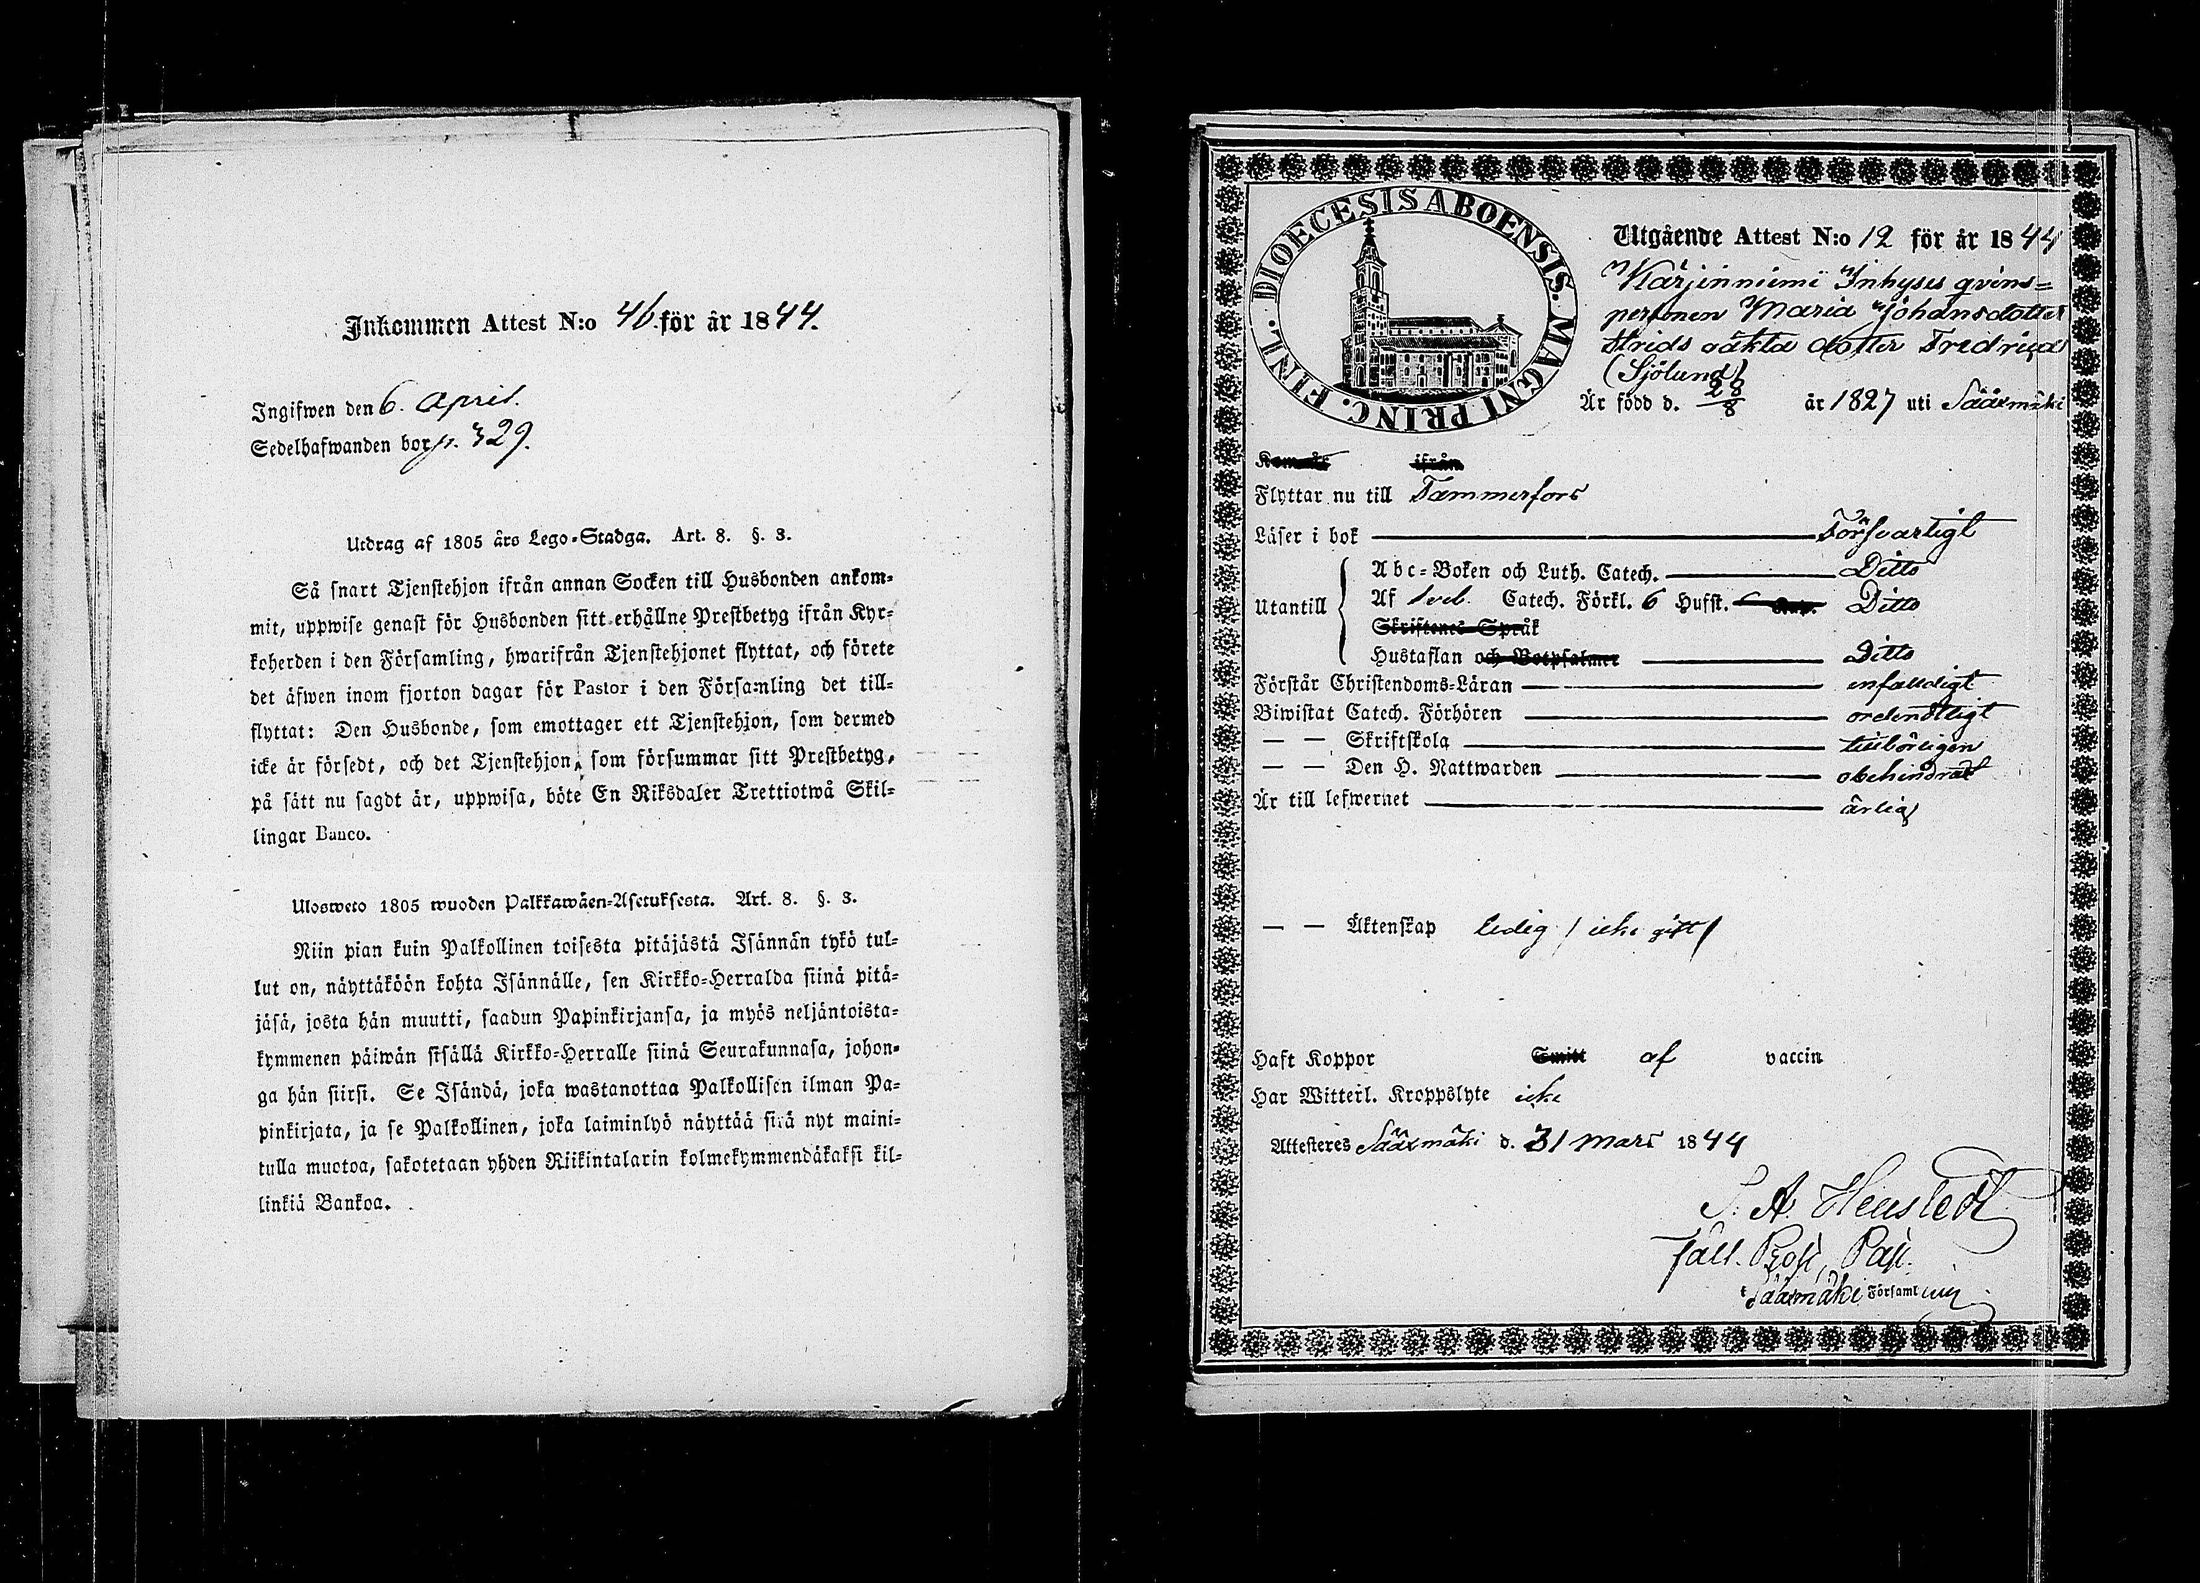 Inkommen Attest N:o 46. för år 1844.
Ingifwen den 6. April.
Sedelhafwanden bor p. 329.
Utdrag af 1805 års Lego-Stadga. Art. 8. §. 3.
Så snart Tjenstehjon ifrån annan Socken till Husbonden ankom-
mit, uppwise genast för Husbonden sitt erhållne Prestbetyg ifrån Kyr-
koherden i den Församling, hwarifrån Tjenstehjonet flyttat, och förete
det äfwen inom fjorton dagar för Pastor i den Församling det till-
flyttat: Den Husbonde, som emottager ett Tjenstehjon, som dermed
icke är försedt, och det Tjenstehjon, som försummar sitt Prestbetyg,
på sätt nu sagdt är, uppwisa, böte En Riksdaler Trettiotwå Skil-
lingar Banco.
Ulosweto 1805 wuoden Palkkawäen-Asetuksesta. Art. 8. §. 3.
Niin pian kuin Palkollinen toisesta pitäjästä Isännän tykö tul-
lut on, näyttäköön kohta Isännälle, sen Kirkko-Herralda siinä pitä-
jäsä, josta hän muutti, saadun Papinkirjansa, ja myös neljäntoista-
kymmenen päiwän sisällä Kirkko-Herralle siinä Seurakunnasa, johon-
ga hän siirsi. Se Isändä, joka wastanottaa Palkollisen ilman Pa-
pinkirjata, ja se Palkollinen, joka laiminlyö näyttää sitä nyt maini-
tulla muotoa, sakotetaan yhden Riikintalarin kolmekymmendäkaksi kil-
linkiä Bankoa.
DIOECESIS ABOENSIS. MAGNI PRINC. FINL.
Utgående Attest N:o 12 för år 1844
Karjinniemi Inhyses qvins=
personen Maria Johansdotter
Strids oäkta dotter Fredrica
(Sjölund)
Är född d. 28/8 år 1827 uti Sääxmäki
Kommit ifrån
Flyttar nu till Tammerfors
Läser i bok Försvarligt
Utantill
Abc-Boken och Luth. Catech. Ditto
Af Catech. Förkl. 6 Hufst. Ditto
Skriftenes Språk
Hustaflan och Botpsalmer Ditto
Förstår Christendoms-Läran enfaldigt
Biwistat Catech. Förhören ordentligt
— — Skriftskola tillbörligen
— — Den H. Nattwarden obehindrad
Är till lefwernet ärlig
— — Äktenskap ledig / icke gift /
Haft Koppor Smitt af vaccin
Har Witterl. Kroppslyte icke
Attesteres Sääxmäki d. 31 Mars 1844
Fält. Prost, Past.
i Sääxmäki Församling